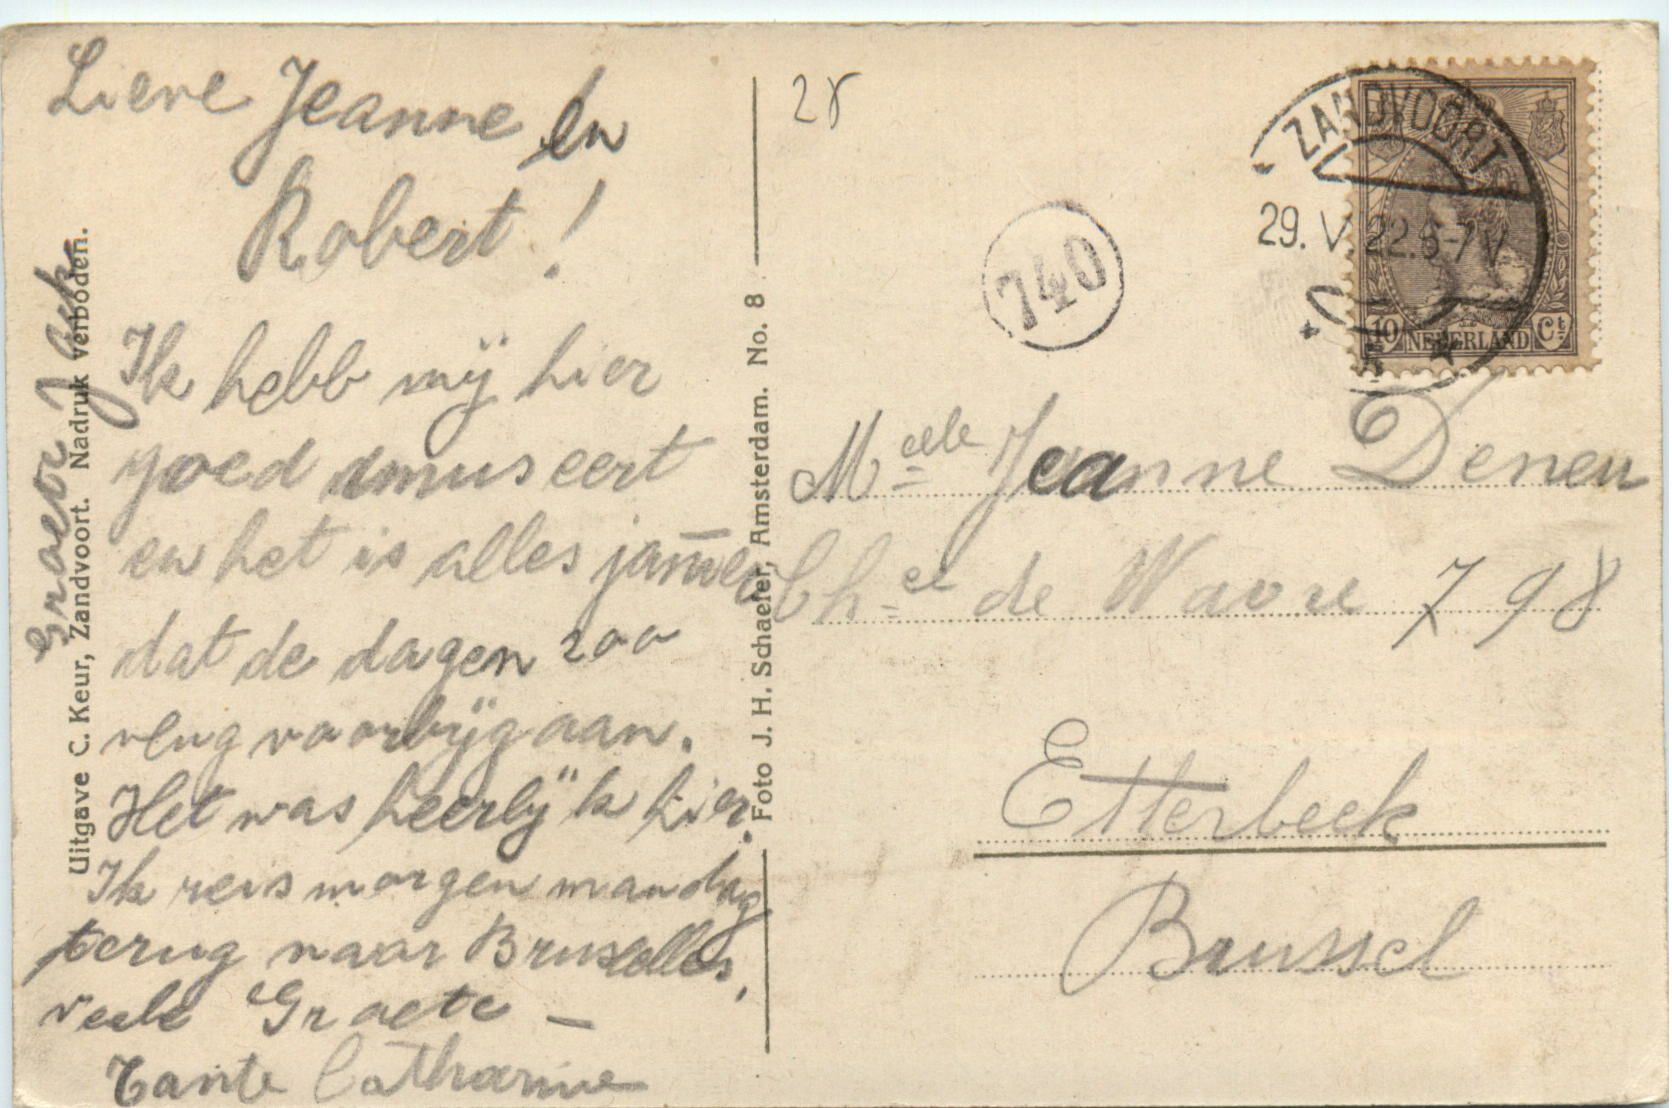 Lieve Jeanne en
Robert!
Ik hebb mij hier
goed amuseert
en het is alles jammer
dat de dagen zoo
vlug voorbijgaan.
Het was heerlijk hier.
Ik reis morgen maandag
terug naar Brusselles,
veele Groete —
Tante Catharine
Uitgave C. Keur, Zandvoort. Nadruk verboden.
Foto J. H. Schaefer, Amsterdam. No. 8
28
740
ZANDVOORT
29. V 22. 6-7 V
10 NEDERLAND Ct
Melle Jeanne Deneu
Chée de Wavre 798
Etterbeek
Brussel